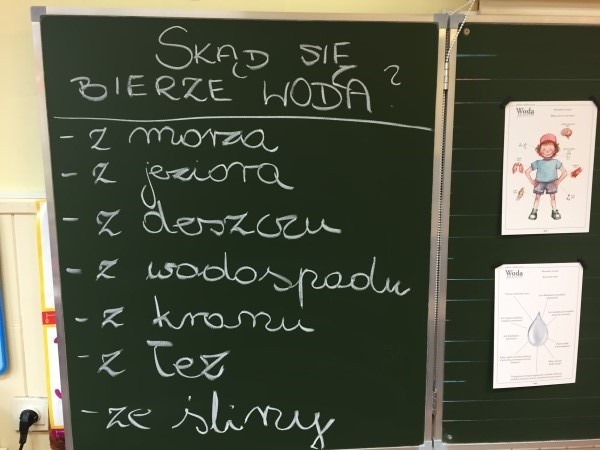 SKĄD SIĘ
BIERZE WODA?
- z morza
- z jeziora
- z deszczu
- z wodospadu
- z kranu
- z łez
- ze śliny
Woda
Woda